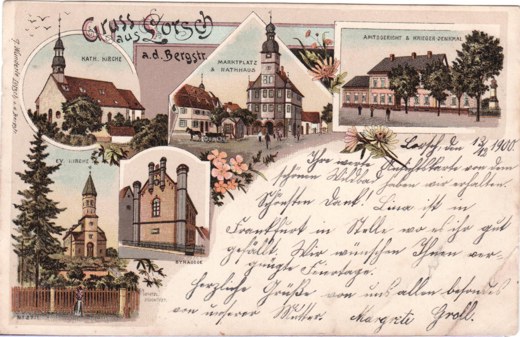 Gruss aus Lorsch
a.d. Bergstr.
KATH. KIRCHE
MARKTPLATZ
& RATHHAUS
AMTSGERICHT & KRIEGER DENKMAL
EV. KIRCHE
STRASSE
Lorsch, den 1900.
Ihre werte Ansichtskarte von dem
schönen Wildbad haben wir erhalten.
Schönsten Dank! Lina ist in
Frankfurt in Stelle wo es ihr gut
gefällt. Wir wünschen Ihnen ver-
gnügte Feiertage.
Herzliche Grüße von uns allen besonders
von unserer Mutter. Margrete Groll.